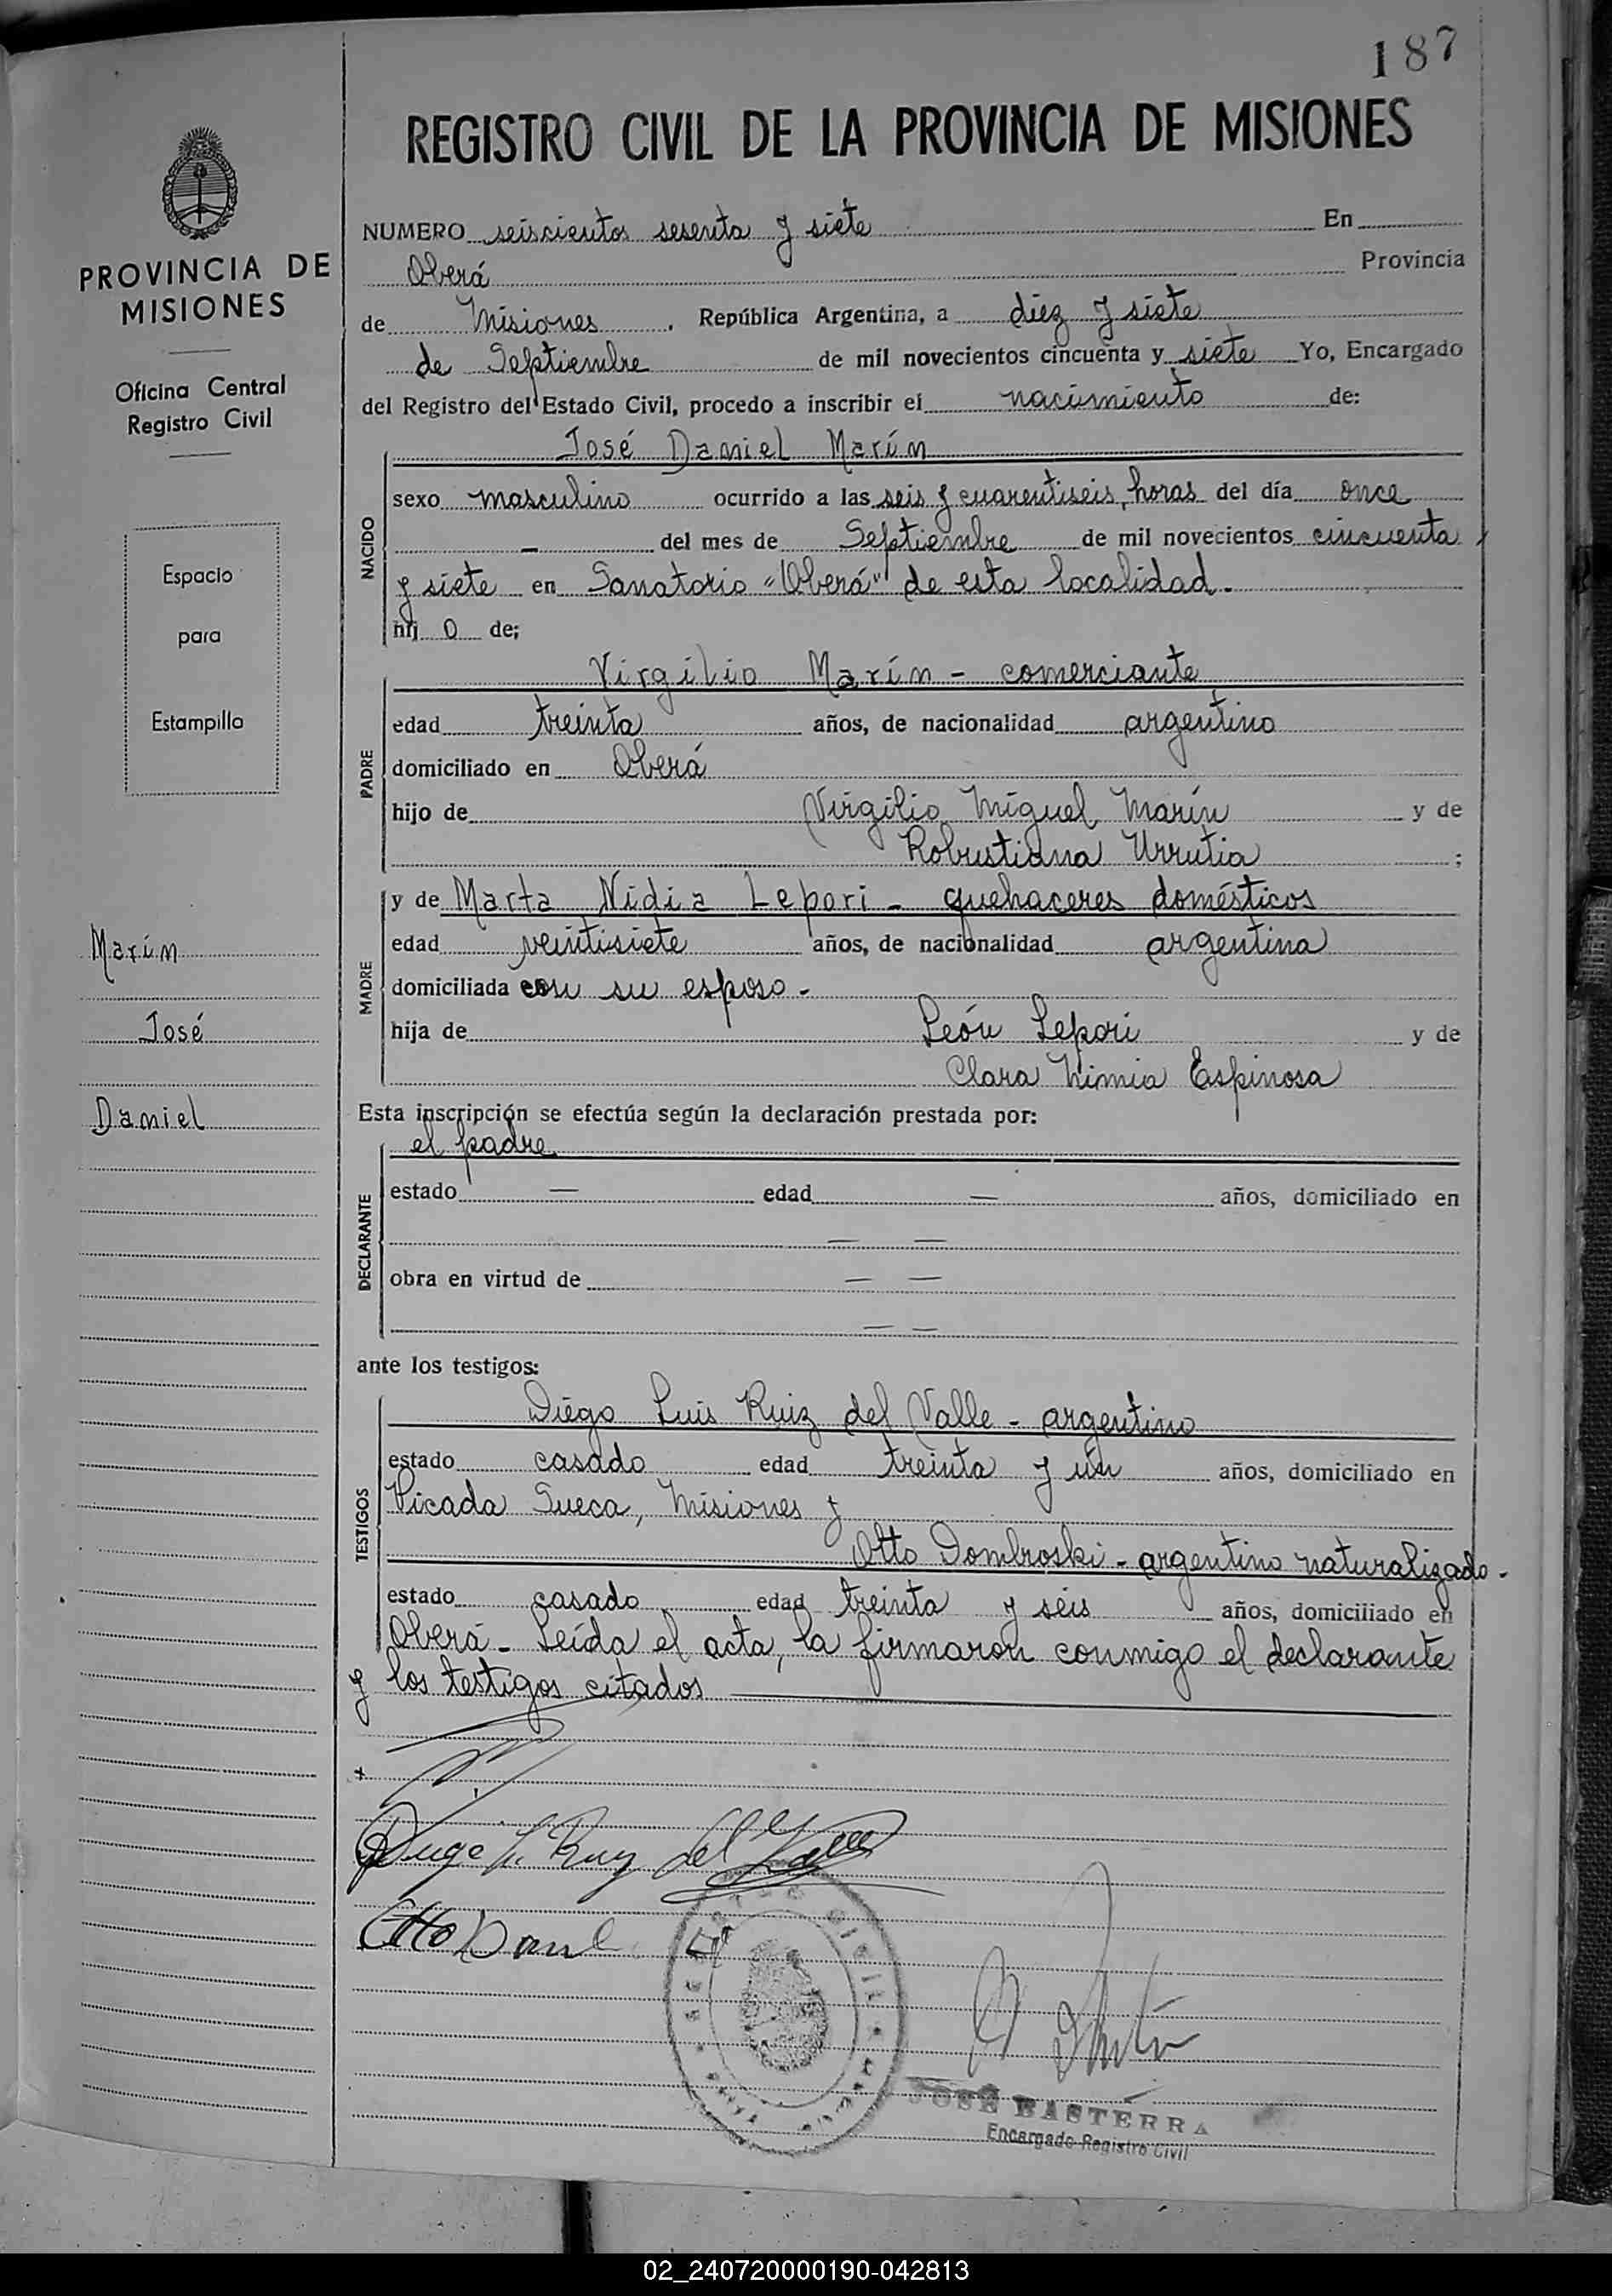 187
REGISTRO CIVIL DE LA PROVINCIA DE MISIONES
PROVINCIA DE
MISIONES
Oficina Central
Registro Civil
Espacio
para
Estampilla
Marín
José
Daniel
NUMERO seiscientos sesenta y siete En
Oberá Provincia
de Misiones, República Argentina, a diez y siete
de Septiembre de mil novecientos cincuenta y siete Yo, Encargado
del Registro del Estado Civil, procedo a inscribir el nacimiento de:
NACIDO
José Daniel Marín
sexo masculino ocurrido a las seis y cuarentiseis horas del día once
— del mes de Septiembre de mil novecientos cincuenta
y siete en Sanatorio "Oberá" de esta localidad.
hij o de;
PADRE
Virgilio Marín - comerciante
edad treinta años, de nacionalidad argentino
domiciliado en Oberá
hijo de Virgilio Miguel Marín y de
Robustiana Urrutia ;
MADRE
y de Marta Nidia Lepori - quehaceres domésticos
edad veintisiete años, de nacionalidad argentina
domiciliada con su esposo -
hija de León Lepori y de
Clara Nimia Espinosa
Esta inscripción se efectúa según la declaración prestada por:
DECLARANTE
el padre
estado — edad — años, domiciliado en
— —
obra en virtud de — —
— —
ante los testigos:
TESTIGOS
Diego Luis Ruiz del Valle - argentino
estado casado edad treinta y un años, domiciliado en
Picada Sueca, Misiones y
Otto Dombroski - argentino naturalizado -
estado casado edad treinta y seis años, domiciliado en
Oberá - Leída el acta, la firmaron conmigo el declarante
y los testigos citados
Diego L. Ruiz del Valle
Otto
JOSÉ BASTERRA
Encargado Registro Civil
02_240720000190-042813